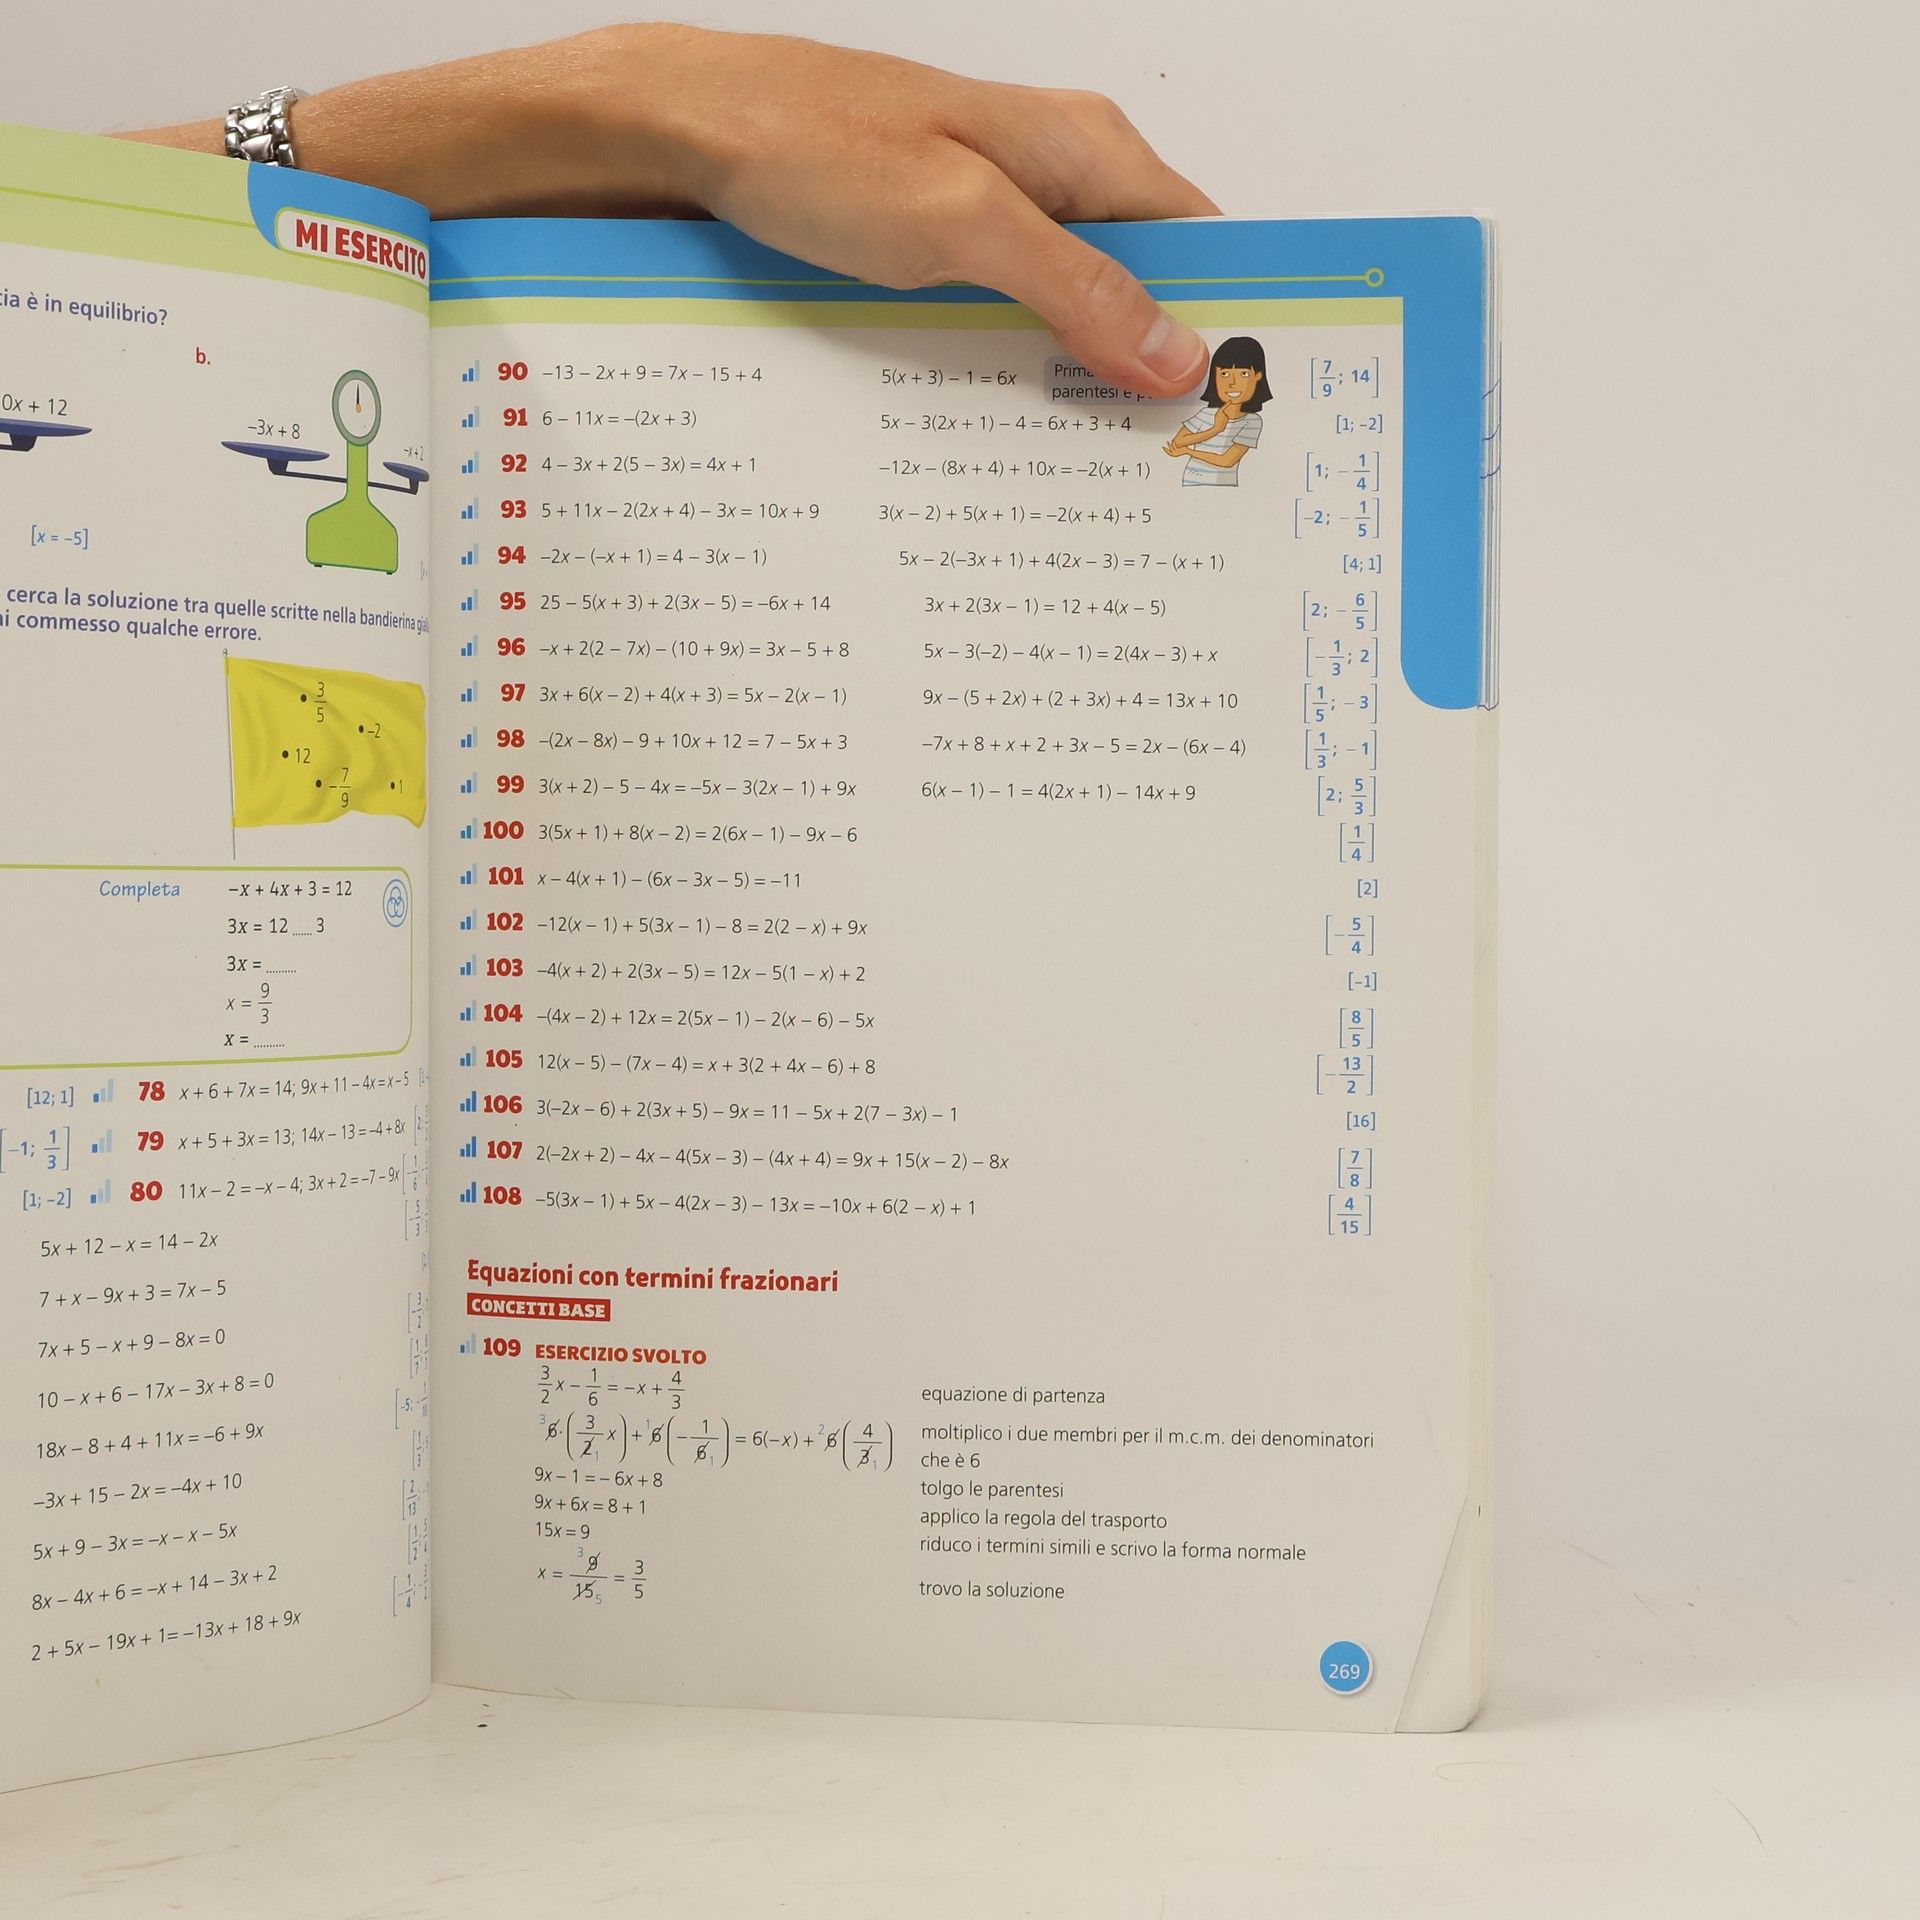 MI ESERCITO
è in equilibrio?
b.
0x + 12
–3x + 8
–x + 2
[x = –5]
cerca la soluzione tra quelle scritte nella bandierina
commesso qualche errore.
• 3/5
• –2
• 12
• –7/9
• 1
Completa –x + 4x + 3 = 12
3x = 12 ...... 3
3x = .........
x = 9/3
x = .........
[12; 1] 78 x + 6 + 7x = 14; 9x + 11 – 4x = x – 5
[–1; 1/3] 79 x + 5 + 3x = 13; 14x – 13 = –4 + 8x
[1; –2] 80 11x – 2 = –x – 4; 3x + 2 = –7 – 9x
5x + 12 – x = 14 – 2x
7 + x – 9x + 3 = 7x – 5
7x + 5 – x + 9 – 8x = 0
10 – x + 6 – 17x – 3x + 8 = 0
18x – 8 + 4 + 11x = –6 + 9x
–3x + 15 – 2x = –4x + 10
5x + 9 – 3x = –x – x – 5x
8x – 4x + 6 = –x + 14 – 3x + 2
2 + 5x – 19x + 1 = –13x + 18 + 9x
90 –13 – 2x + 9 = 7x – 15 + 4 5(x + 3) – 1 = 6x [7/9; 14]
parentesi e
91 6 – 11x = –(2x + 3) 5x – 3(2x + 1) – 4 = 6x + 3 + 4 [1; –2]
92 4 – 3x + 2(5 – 3x) = 4x + 1 –12x – (8x + 4) + 10x = –2(x + 1) [1; –1/4]
93 5 + 11x – 2(2x + 4) – 3x = 10x + 9 3(x – 2) + 5(x + 1) = –2(x + 4) + 5 [–2; –1/5]
94 –2x – (–x + 1) = 4 – 3(x – 1) 5x – 2(–3x + 1) + 4(2x – 3) = 7 – (x + 1) [4; 1]
95 25 – 5(x + 3) + 2(3x – 5) = –6x + 14 3x + 2(3x – 1) = 12 + 4(x – 5) [2; –6/5]
96 –x + 2(2 – 7x) – (10 + 9x) = 3x – 5 + 8 5x – 3(–2) – 4(x – 1) = 2(4x – 3) + x [–1/3; 2]
97 3x + 6(x – 2) + 4(x + 3) = 5x – 2(x – 1) 9x – (5 + 2x) + (2 + 3x) + 4 = 13x + 10 [1/5; –3]
98 –(2x – 8x) – 9 + 10x + 12 = 7 – 5x + 3 –7x + 8 + x + 2 + 3x – 5 = 2x – (6x – 4) [1/3; –1]
99 3(x + 2) – 5 – 4x = –5x – 3(2x – 1) + 9x 6(x – 1) – 1 = 4(2x + 1) – 14x + 9 [2; 5/3]
100 3(5x + 1) + 8(x – 2) = 2(6x – 1) – 9x – 6 [1/4]
101 x – 4(x + 1) – (6x – 3x – 5) = –11 [2]
102 –12(x – 1) + 5(3x – 1) – 8 = 2(2 – x) + 9x [–5/4]
103 –4(x + 2) + 2(3x – 5) = 12x – 5(1 – x) + 2 [–1]
104 –(4x – 2) + 12x = 2(5x – 1) – 2(x – 6) – 5x [8/5]
105 12(x – 5) – (7x – 4) = x + 3(2 + 4x – 6) + 8 [–13/2]
106 3(–2x – 6) + 2(3x + 5) – 9x = 11 – 5x + 2(7 – 3x) – 1 [16]
107 2(–2x + 2) – 4x – 4(5x – 3) – (4x + 4) = 9x + 15(x – 2) – 8x [7/8]
108 –5(3x – 1) + 5x – 4(2x – 3) – 13x = –10x + 6(2 – x) + 1 [4/15]
Equazioni con termini frazionari
CONCETTI BASE
109 ESERCIZIO SVOLTO
3/2 x – 1/6 = –x + 4/3 equazione di partenza
³6 · (3/2₁ x) + ¹6 (–1/6₁) = 6(–x) + ²6 (4/3₁) moltiplico i due membri per il m.c.m. dei denominatori
che è 6
9x – 1 = – 6x + 8 tolgo le parentesi
9x + 6x = 8 + 1 applico la regola del trasporto
15x = 9 riduco i termini simili e scrivo la forma normale
x = ³9/15₅ = 3/5 trovo la soluzione
269